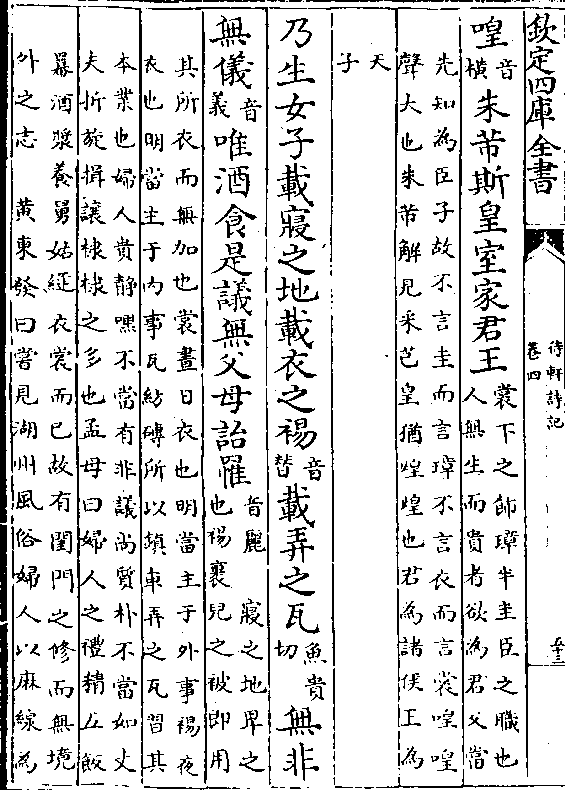 欽定四庫全書
待軒詩記
卷四
五十三
喤音橫朱芾斯皇室家君王裳下之飾璋半圭臣之職也
人無生而貴者欲為君父當
先知為臣子故不言圭而言璋不言衣而言裳喤喤
聲大也朱芾解見采芑皇猶煌煌也君為諸侯王為
天
子
乃生女子載寢之地載衣之裼音替載弄之瓦魚貴切無非
無儀音義唯酒食是議無父母詒罹音麗 寢之地卑之
也裼裹兒之被即用
其所衣而無加也裳晝日衣也明當主于外事裼夜
衣也明當主于内事瓦紡磚所以鎮車弄之瓦習其
本業也婦人貴静嘿不當有非議尚質朴不當如丈
夫折旋揖讓棣棣之多也孟母曰婦人之禮精五飯
羃酒漿養舅姑縫衣裳而已故有閨門之修而無境
外之志 黄東發曰嘗見湖州風俗婦人以麻線為